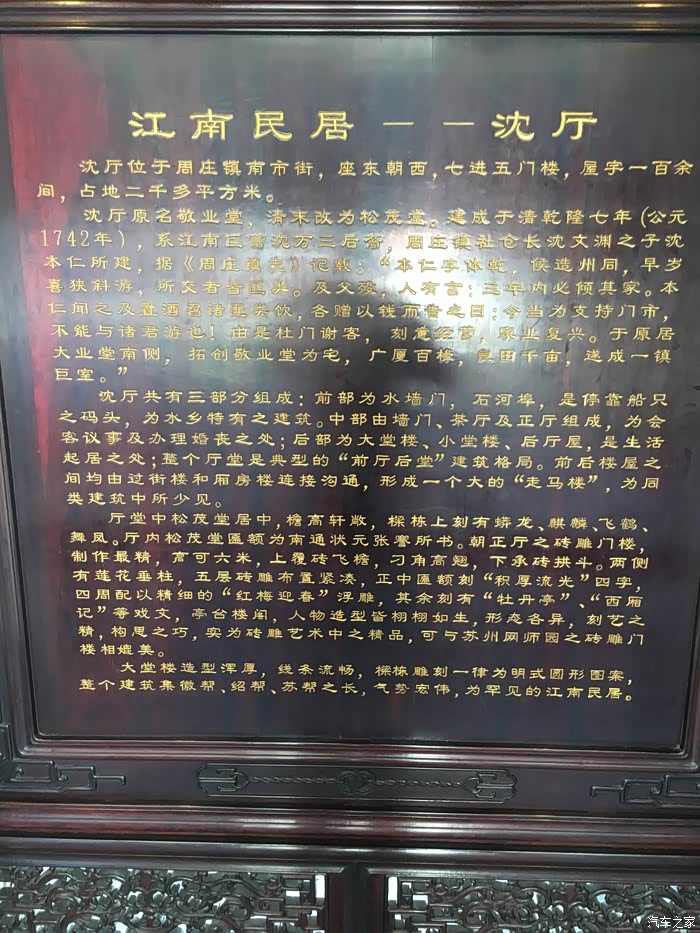 江南民居——沈厅
沈厅位于周庄镇南市街，座东朝西，七进五门楼，屋字一百余
间，占地二千多平方米。
沈厅原名敬业堂，清末改为松茂堂。建成于清乾隆七年(公元
1742年)，系江南巨富沈万三后裔，周庄镇社仓长沈文渊之子沈
本仁所建，据《周庄镇志》记载：“本仁字体乾，侯造州同，早岁
喜狭斜游，所交者皆匪类。及父殁，人有言：三年内必倾其家。本
仁闻之及置酒召诸匪类饮，各赠以钱而告之曰：今当为支持门市，
不能与诸君游也！由是杜门谢客，刻意经营，家业复兴。于原居
大业堂南侧，拓创敬业堂为宅，广厦百椽，良田千亩，遂成一镇
巨室。”
沈厅共有三部分组成：前部为水墙门，石河埠，是停靠船只
之码头，为水乡特有之建筑。中部由墙门、茶厅及正厅组成，为会
客议事及办理婚丧之处；后部为大堂楼、小堂楼、后厅屋，是生活
起居之处；整个厅堂是典型的“前厅后堂”建筑格局。前后楼屋之
间均由过街楼和厢房楼连接沟通，形成一个大的“走马楼”，为同
类建筑中所少见。
厅堂中松茂堂居中，檐高轩敞，樑栋上刻有蟒龙、麒麟、飞鹤、
舞凤。厅内松茂堂匾额为南通状元张謇所书。朝正厅之砖雕门楼，
制作最精，高可六米，上覆砖飞檐，刁角高翘，下承砖拱斗。两侧
有莲花垂柱，五层砖雕布置紧凑，正中匾额刻“积厚流光”四字，
四周配以精细的“红梅迎春”浮雕，其余刻有“牡丹亭”、“西厢
记”等戏文，亭台楼阁，人物造型皆栩栩如生，形态各异，刻艺之
精，构思之巧，实为砖雕艺术中之精品，可与苏州网师园之砖雕门
楼相媲美。
大堂楼造型浑厚，线条流畅，樑栋雕刻一律为明式圆形图案，
整个建筑集徽帮、绍帮、苏帮之长，气势宏伟，为罕见的江南民居。
汽车之家